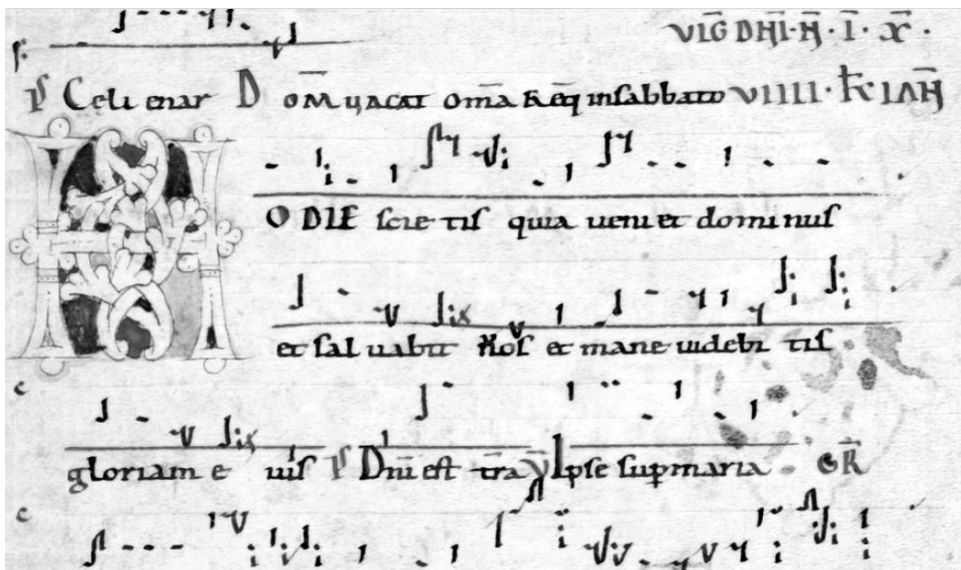 VIG DN̄I· N̄· Ī· X̄·
PS Celi enar D om̄ uacat om̄a &eq̄ insabbato VIIII· k̄l IAN̄
HODIE scietis quia ueniet dominus
et saluabit nos et mane uidebitis
gloriam eius PS Dn̄i est tr̄a V Ipse sup maria GR̄